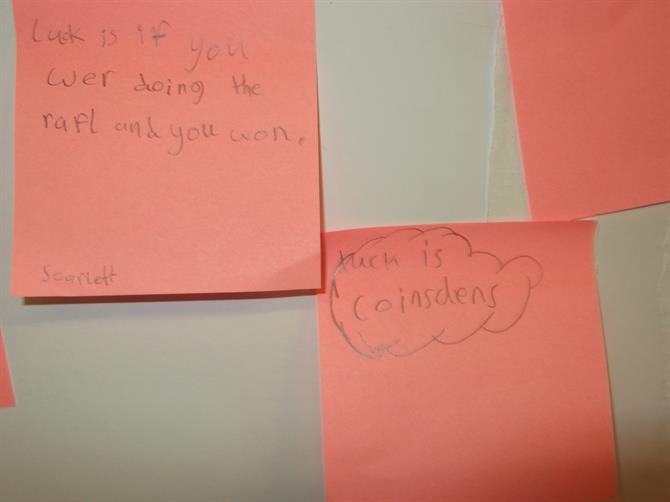 Luck is if you
wer doing the
rafl and you won.
Scarlett
Luck is
coinsdens